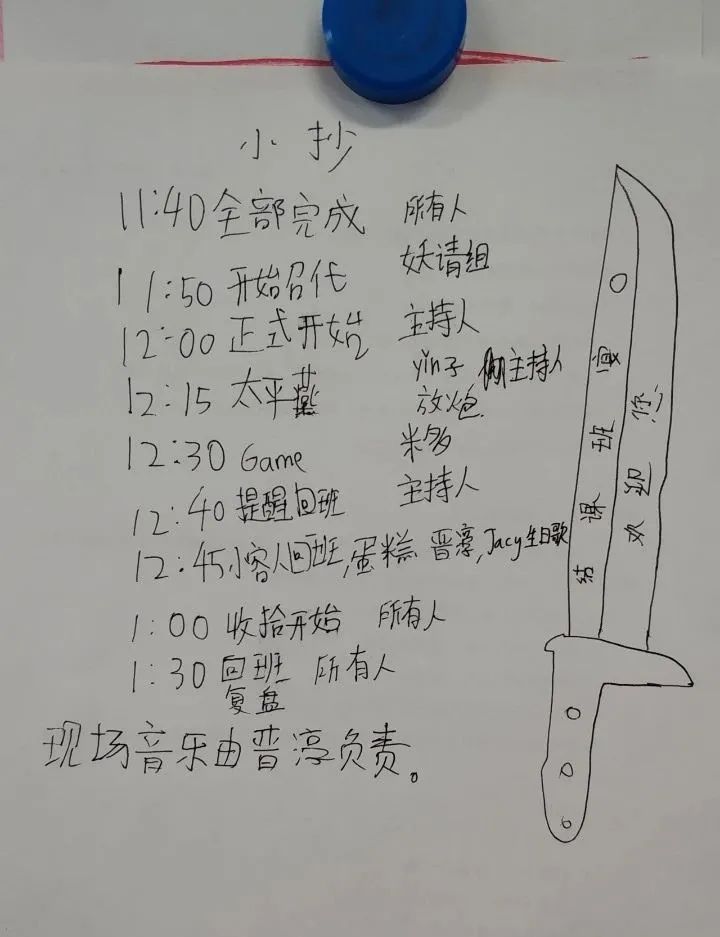 小抄
11:40 全部完成 所有人
11:50 开始召代 妖请组
12:00 正式开始 主持人
12:15 太平燕 yin子 主持人
放炮
12:30 Game 米多
12:40 提醒回班 主持人
12:45 小客人回班,蛋糕 晋淳,Jacy生日歌
1:00 收拾开始 所有人
1:30 回班 所有人
复盘
现场音乐由晋淳负责。
结课班宴
欢迎您